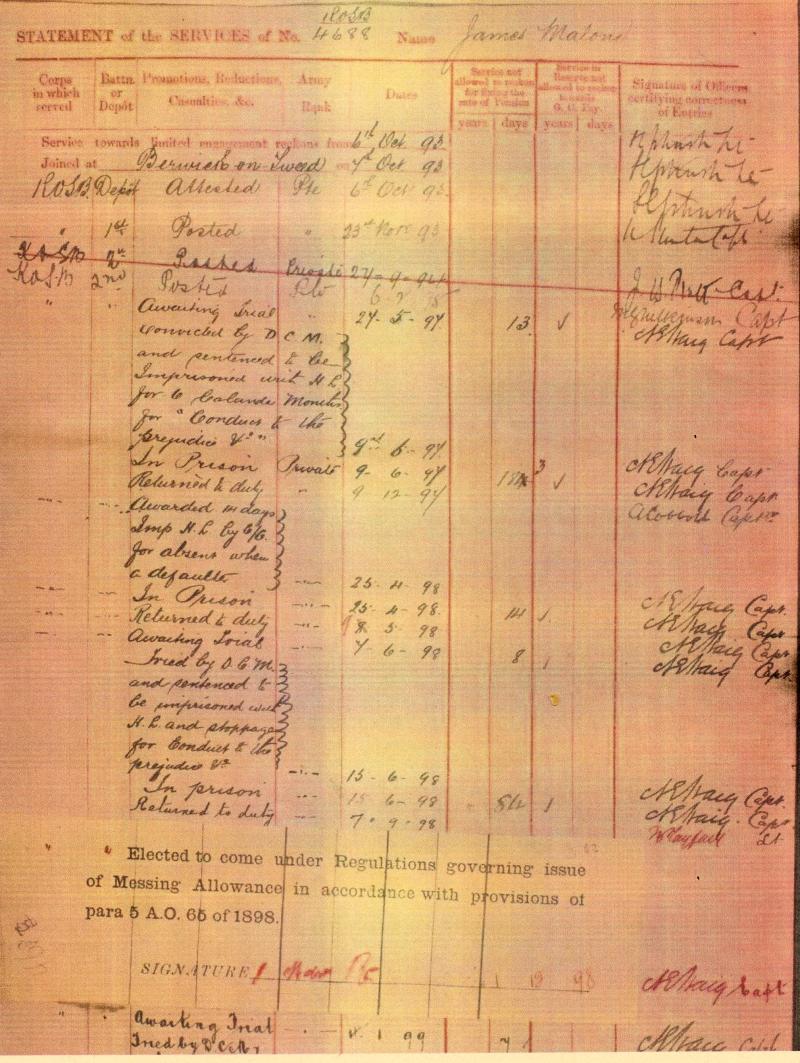 KOSB
STATEMENT of the SERVICES of No. 4688 Name James Malone
Corps in which served Battn. or Depôt Promotions, Reductions, Casualties, &c. Army Rank Dates Service not allowed to reckon for fixing the rate of Pension Service in Reserve not allowed to reckon towards G. C. Pay. Signature of Officers certifying correctness of Entries
years days years days
Service towards limited engagement reckons from 6th Oct 93
Joined at Berwick-on-Tweed on 7th Oct 93
KOSB Depôt Attested Pte 6th Oct 93
" 1st Posted " 23rd Nov 93
KOSB 2nd Posted Private 27-9-94
KOSB 2nd Posted Pte
" " Awaiting Trial " 27-5-97 13 Capt
Convicted by D.C.M. NE Haig Capt
and sentenced to be
Imprisoned with H.L.
for 6 Calendar Months
for "Conduct to the
prejudice &c" 9th 6-97
In Prison Private 9-6-97 NE Haig Capt
Returned to duty " 9-12-97 NE Haig Capt
Awarded 14 days
Imp H.L. by C/O.
for absent when
a defaulter 25-4-98
In Prison 25-4-98 14 NE Haig Capt
Returned to duty 8-5-98 NE Haig Capt
Awaiting Trial 7-6-98 8 NE Haig Capt
Tried by D.C.M. NE Haig Capt
and sentenced to
be imprisoned with
H.L. and stoppages
for Conduct to the
prejudice &c 15-6-98
In prison 15-6-98 84 NE Haig Capt
Returned to duty 7-9-98 NE Haig Capt
Lt
" " Elected to come under Regulations governing issue
of Messing Allowance in accordance with provisions of
para 5 A.O. 65 of 1898.
SIGNATURE NE Haig Capt
Awaiting Trial 1 99 7
Tried by D.C.M. NE Haig Capt